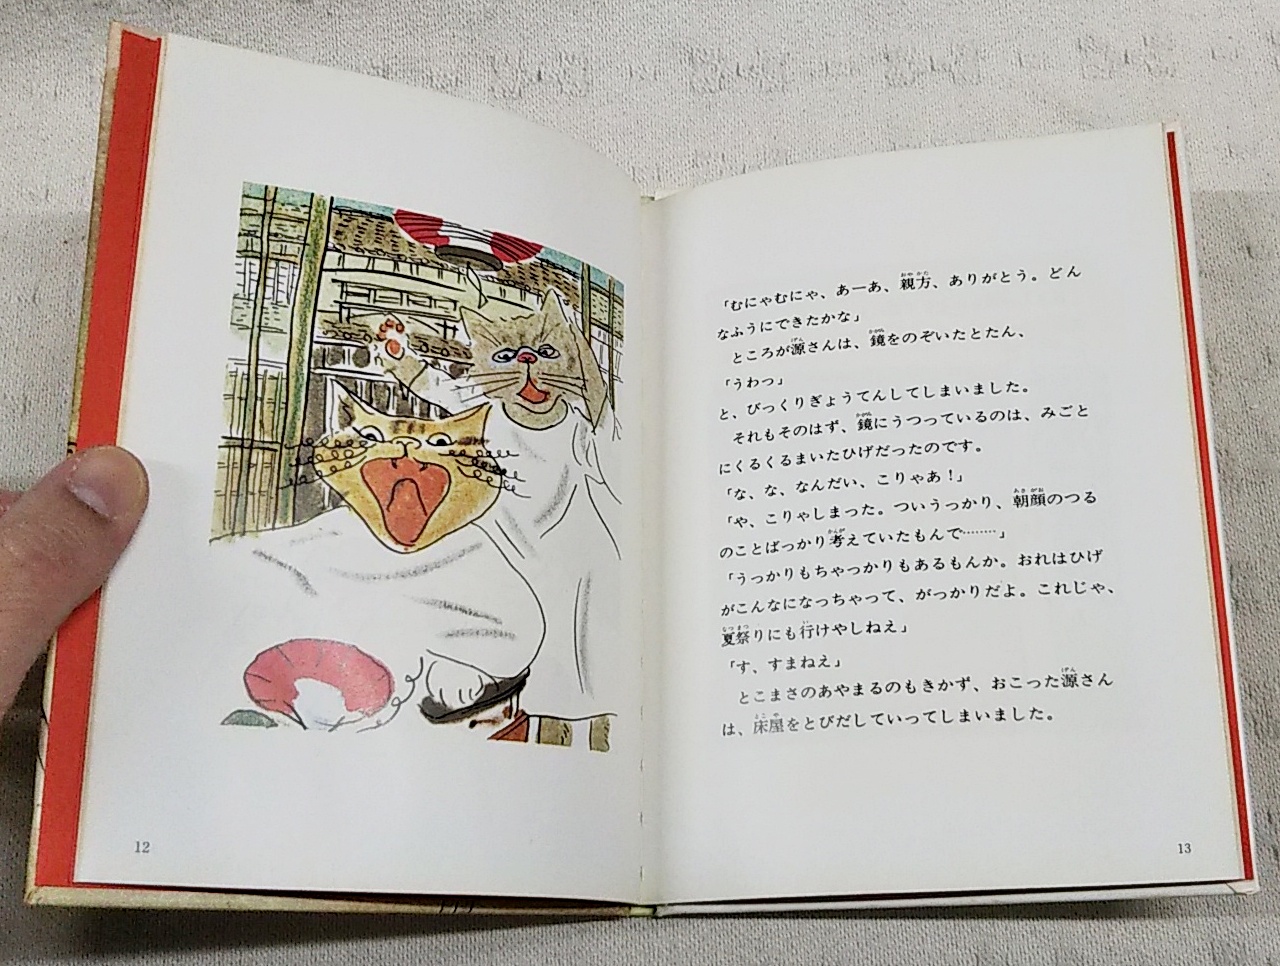 「むにゃむにゃ、あーあ、親方、ありがとう。どん
なふうにできたかな」
ところが源さんは、鏡をのぞいたとたん、
「うわっ」
と、びっくりぎょうてんしてしまいました。
それもそのはず、鏡にうつっているのは、みごと
にくるくるまいたひげだったのです。
「な、な、なんだい、こりゃあ！」
「や、こりゃしまった。ついうっかり、朝顔のつる
のことばっかり考えていたもんで………」
「うっかりもちゃっかりもあるもんか。おれはひげ
がこんなになっちゃって、がっかりだよ。これじゃ、
夏祭りにも行けやしねえ」
「す、すまねえ」
とこまさのあやまるのもきかず、おこった源さん
は、床屋をとびだしていってしまいました。
12
13